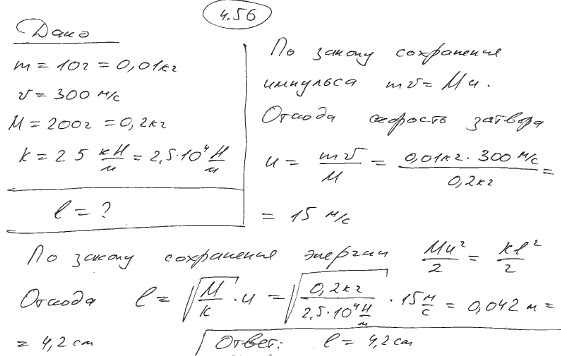 4.56
Дано
m = 10г = 0,01кг
v = 300 м/с
M = 200г = 0,2кг
k = 25 кН/м = 2,5·10⁴ Н/м
l = ?
По закону сохранения
импульса mv = Mu.
Отсюда скорость затвора
u = mv/M = 0,01кг · 300 м/с / 0,2кг =
= 15 м/с
По закону сохранения энергии Mu²/2 = kl²/2
Отсюда l = √(M/k) · u = √(0,2кг / 2,5·10⁴ Н/м) · 15 м/с = 0,042 м =
= 4,2 см Ответ: l = 4,2 см